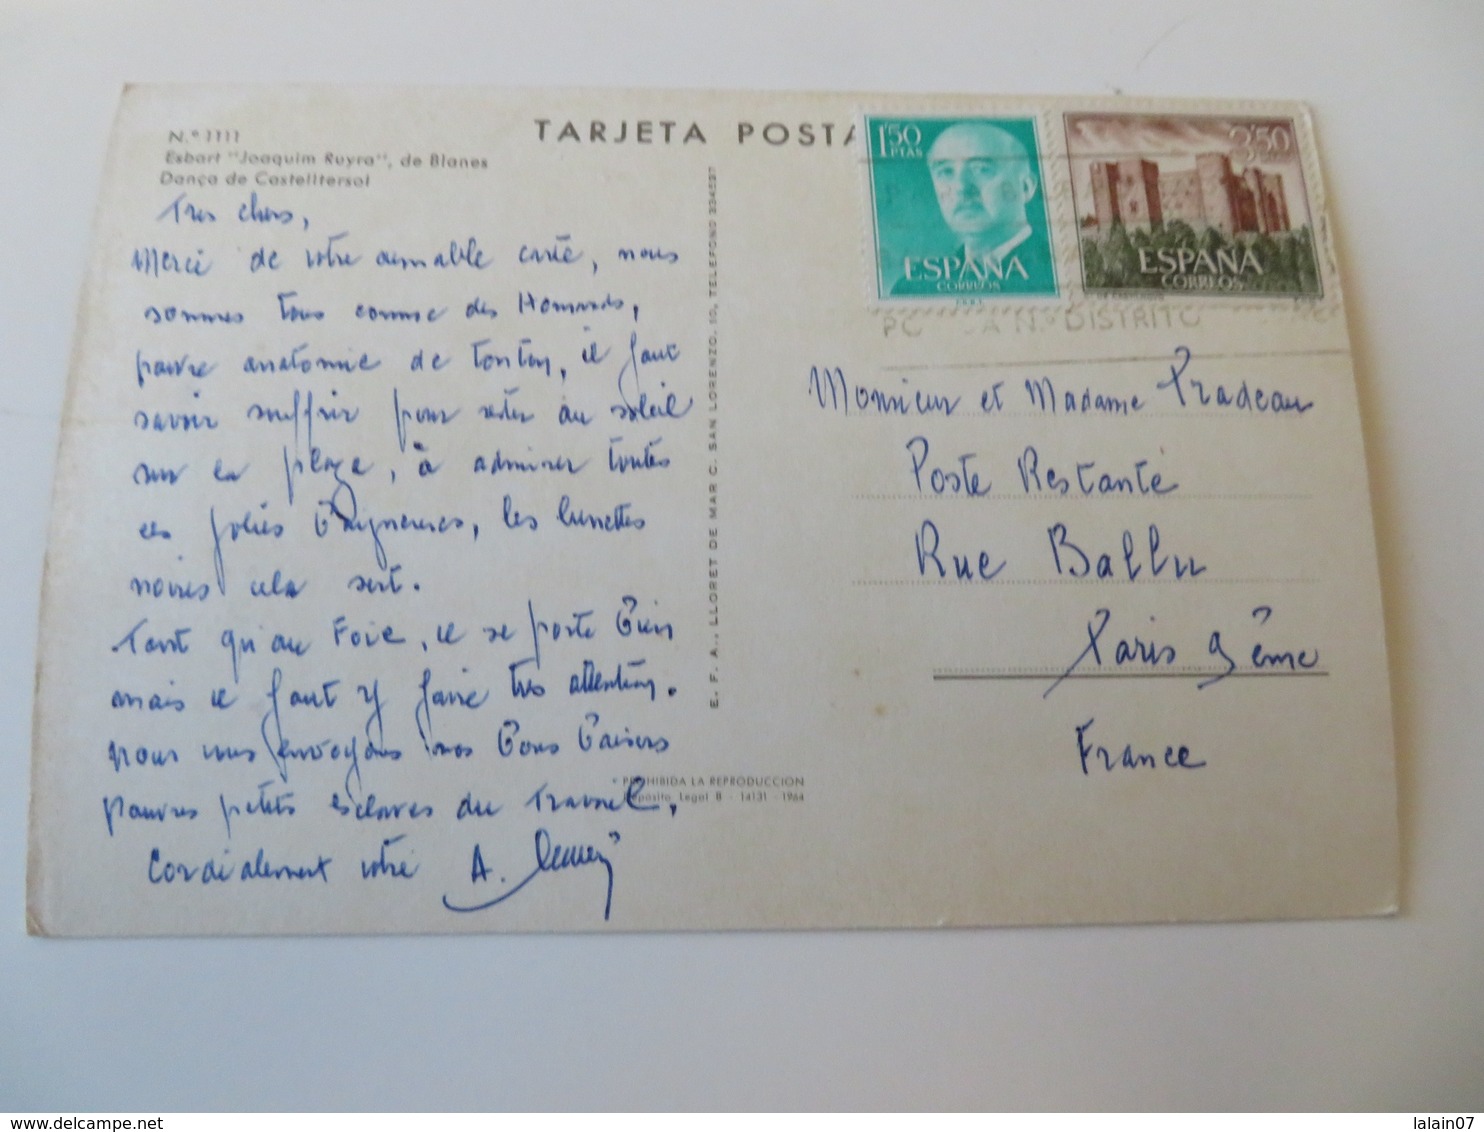 N.º 1111
Esbart "Joaquim Ruyra", de Blanes
Dança de Castelltersol
TARJETA POSTA
1'50
PTAS
ESPAÑA
CORREOS
3'50
ESPAÑA
CORREOS
PO A N.º DISTRITO
Tres chers,
Merci de votre aimable carte, nous
sommes tous comme des Homards,
pauvre anatomie de , il faut
savoir souffrir pour rester au soleil
sur la plage, à admirer toutes
ces jolies Baigneuses, les lunettes
noires cela sert.
Tant qu'au Foie, il se porte bien
mais il faut y faire très attention.
nous vous envoyons nos Bons Baisers
pauvres petits esclaves du Travail,
Cordialement votre A.
E. F. A., LLORET DE MAR C. SAN LORENZO, 10, TELEFONO 334597
PROHIBIDA LA REPRODUCCION
Depósito Legal B - 14131 - 1964
Monsieur et Madame Pradeau
Poste Restante
Rue Ballu
Paris 9ème
France
delcampe.net
lalain07